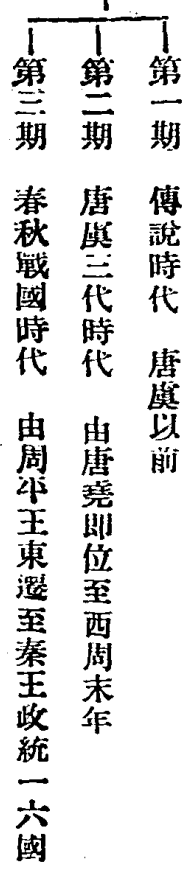 第一期　傳說時代　唐虞以前
第二期　唐虞三代時代　由唐堯即位至西周末年
第三期　春秋戰國時代　由周平王東遷至秦王政統一六國